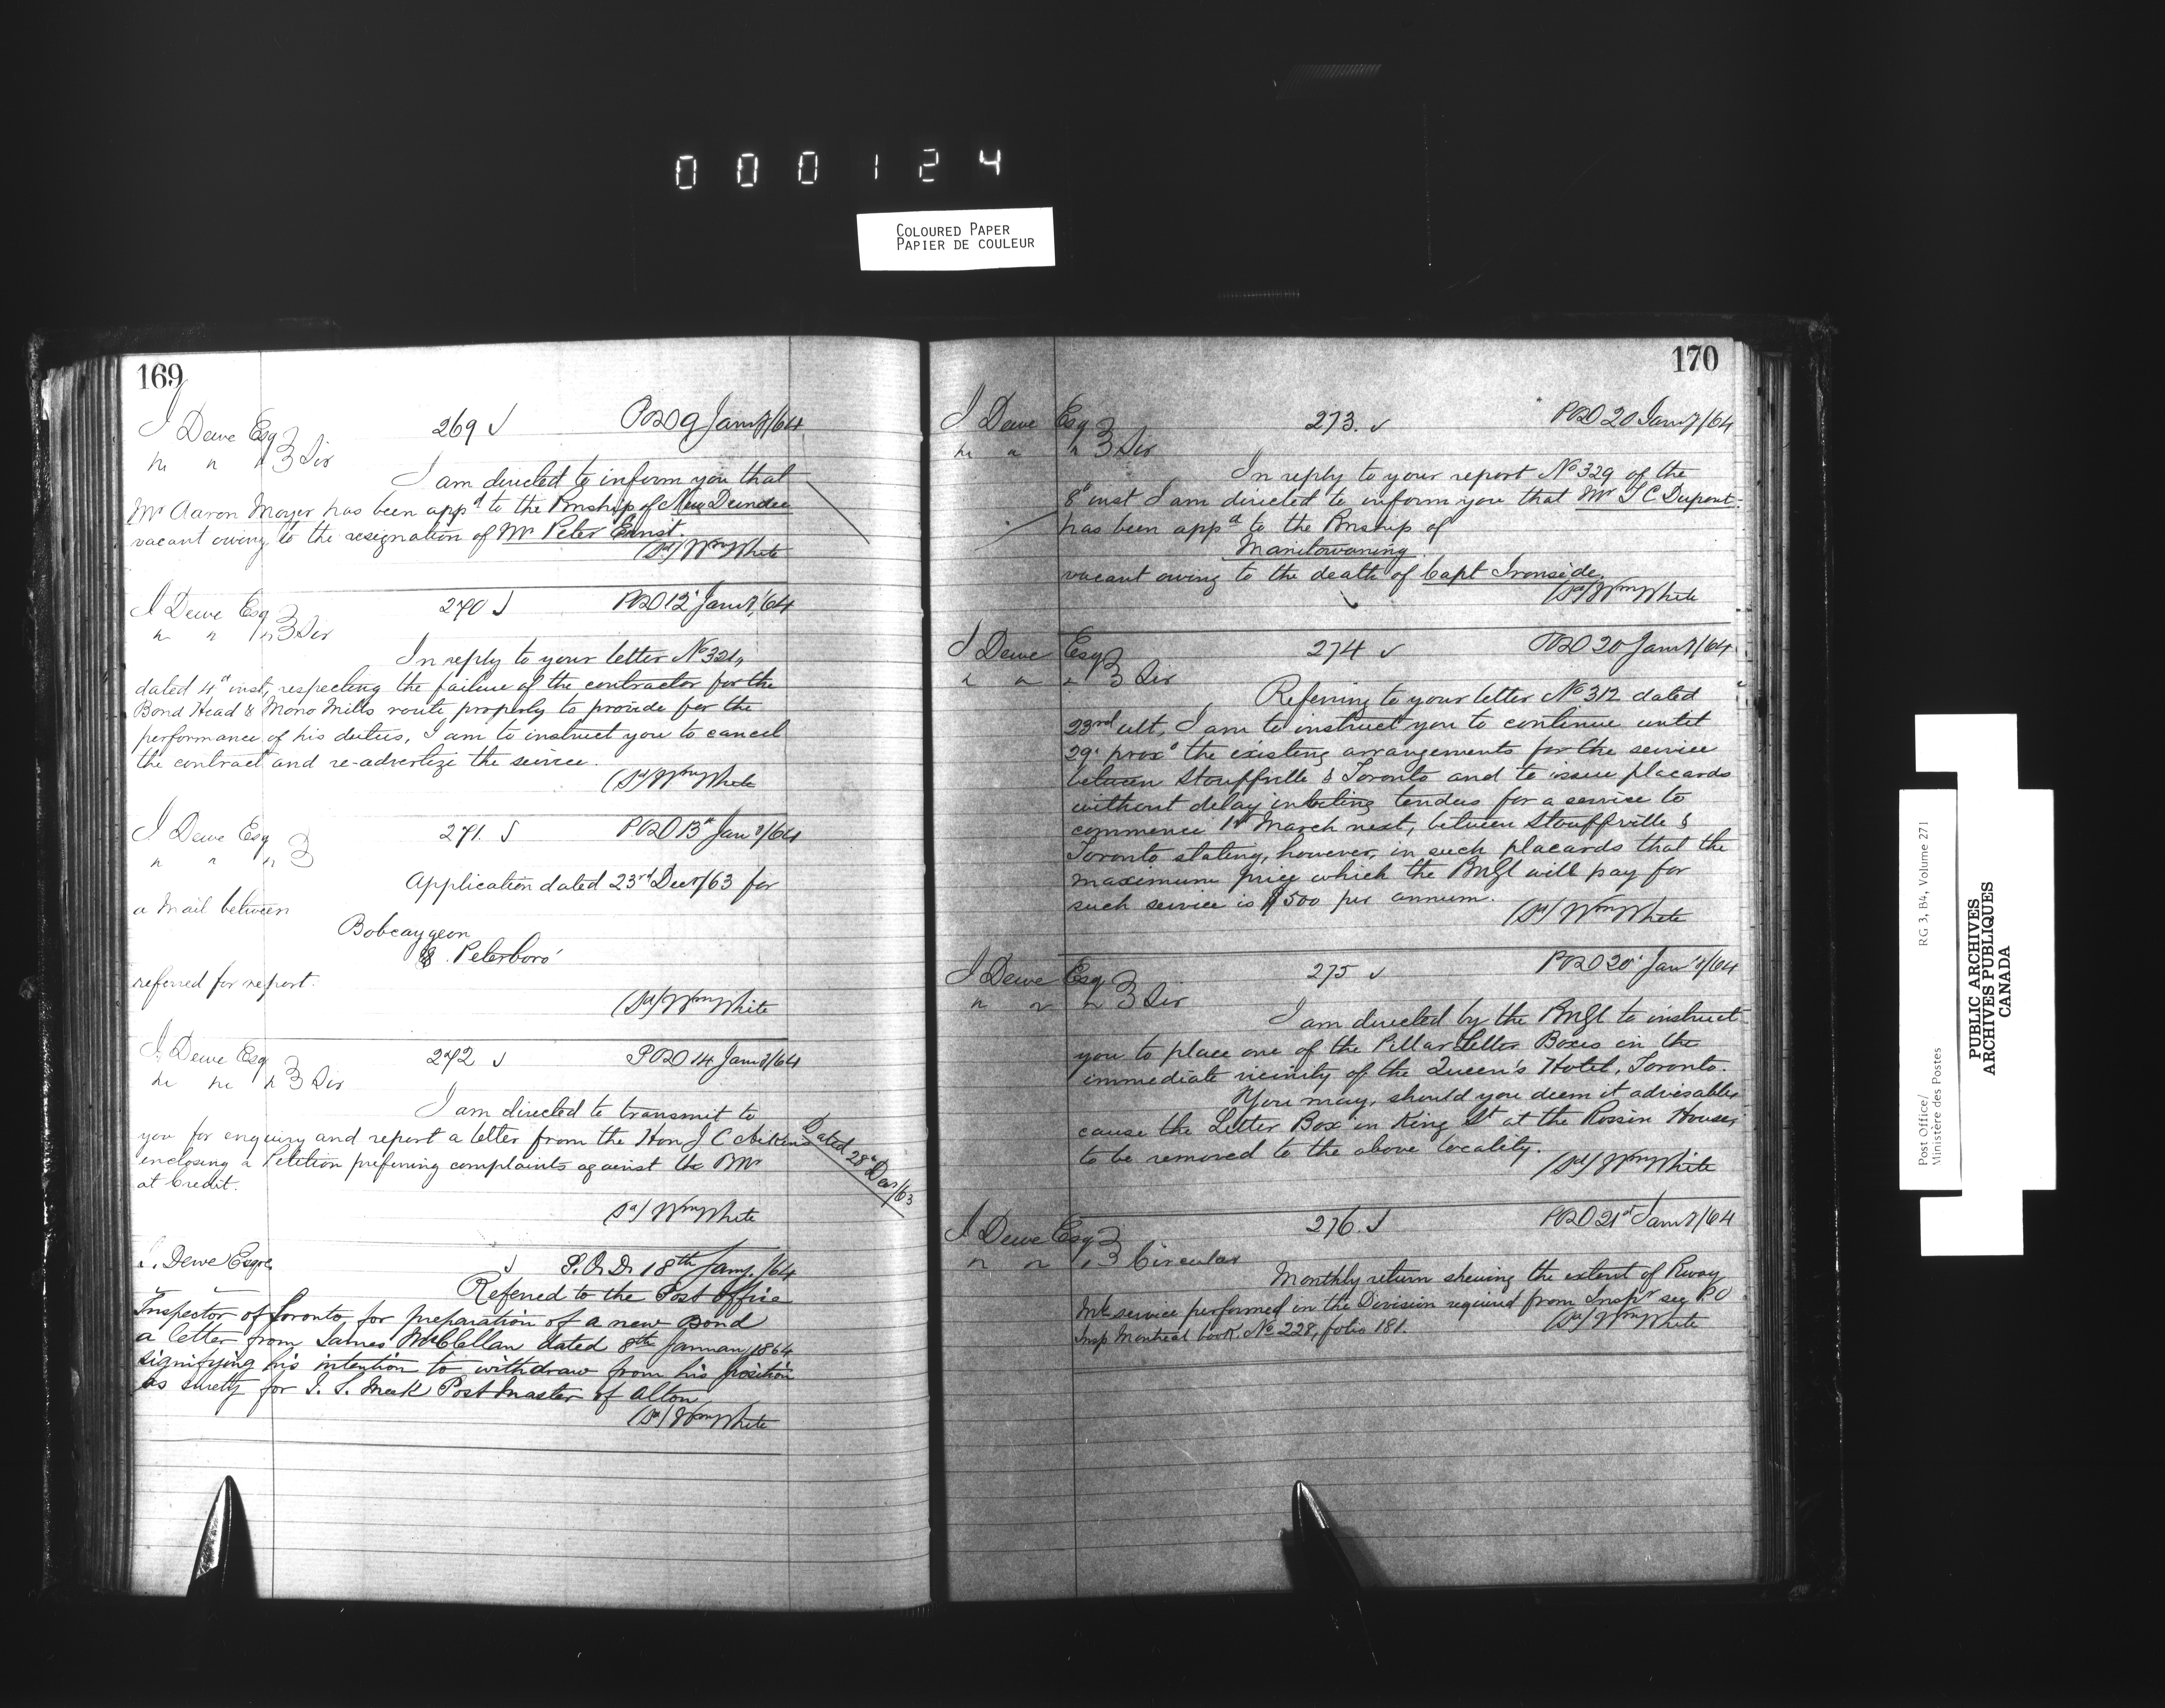 000124
COLOURED PAPER
PAPIER DE COULEUR
169
J Dewe Esq 269 POD 9 Jany/64
" " " Sir
I am directed to inform you that
Mr Aaron Moyer has been appd to the Pmship of New Dundee
vacant owing to the resignation of Mr Peter Ernst.
(Sd) Wm White
J Dewe Esq 270 POD 12' Jany/64
" " " Sir
In reply to your letter No 321,
dated 4th inst, respecting the failure of the contractor for the
Bond Head & Mono Mills route properly to provide for the
performance of his duties, I am to instruct you to cancel
the contract and re-advertize the service.
(Sd) Wm White
J Dewe Esq 271. POD 13th Jany/64
" " "
Application dated 23rd Decr/63 for
a Mail between
Bobcaygeon
& Peterboro'
referred for report.
(Sd) Wm White
J. Dewe Esq 272 POD 14 Jany/64
" " " Sir
I am directed to transmit to
you for enquiry and report a letter from the Hon J C Aikins Dated 28th Decr/63
enclosing a Petition preferring complaints against the PMr
at Credit.
(Sd) Wm White
J. Dewe Esqre P.O.D. 18th Jany. /64
Referred to the Post Office
Inspector of Toronto for preparation of a new Bond
a letter from James McClellan dated 8th January 1864
signifying his intention to withdraw from his position
as surety for J. S. Meek Post Master of Alton
(Sd) Wm White
170
J Dewe Esq 273. POD 20 Jany/64
" " " Sir
In reply to your report No 329 of the
8th inst I am directed to inform you that Mr T C Dupont
has been appd to the Pmship of
Manitowaning
vacant owing to the death of Capt Ironside.
(Sd) Wm White
J Dewe Esq 274 POD 20 Jany/64
" " " Sir
Referring to your letter No 312 dated
23rd ult, I am to instruct you to continue until
29' proxo the existing arrangements for the service
between Stouffville & Toronto and to issue placards
without delay inviting tenders for a service to
commence 1st March next, between Stouffville &
Toronto stating, however, in such placards that the
maximum price which the PMGl will pay for
such service is $500 per annum.
(Sd) Wm White
J Dewe Esq 275 POD 20' Jany/64
" " " Sir
I am directed by the PMGl to instruct
you to place one of the Pillar Letter Boxes in the
immediate vicinity of the Queen's Hotel, Toronto.
You may, should you deem it advisable,
cause the Letter Box in King St at the Rossin House,
to be removed to the above locality.
(Sd) Wm White
J Dewe Esq 276. POD 21st Jany/64
" " " Circular
Monthly return shewing the extent of Rway
Ml service performed in the Division required from Inspr see PO
Insp Montreal book No 228, folio 181.
(Sd) Wm White
Post Office/
Ministère des Postes
RG 3, B4, Volume 271
PUBLIC ARCHIVES
ARCHIVES PUBLIQUES
CANADA